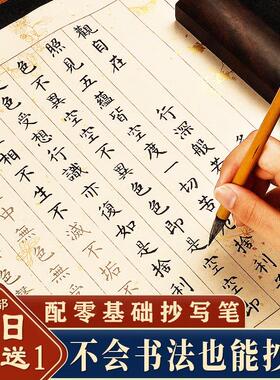 觀自在
行深般
照見五蘊皆空度一切苦
色不異空空
色色即是
空
色
受想行識亦復如是捨利
相不生不
滅不垢
中無色無
部
日
送1
配零基础抄写笔
不会书法也能抄